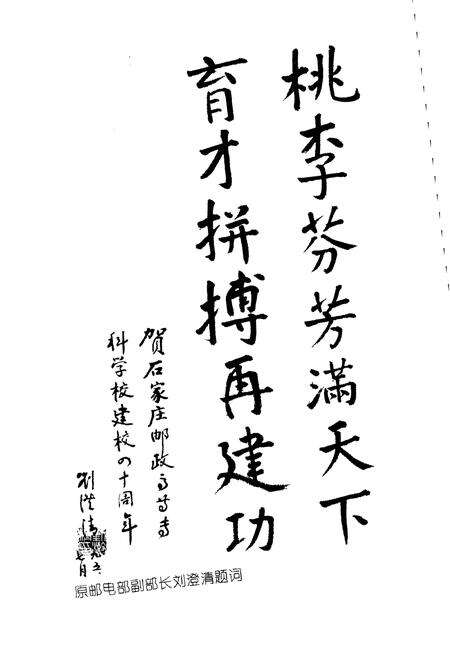 桃李芬芳满天下
育才拼搏再建功
贺石家庄邮政高等专
科学校建校四十周年
刘澄清
七月
原邮电部副部长刘澄清题词